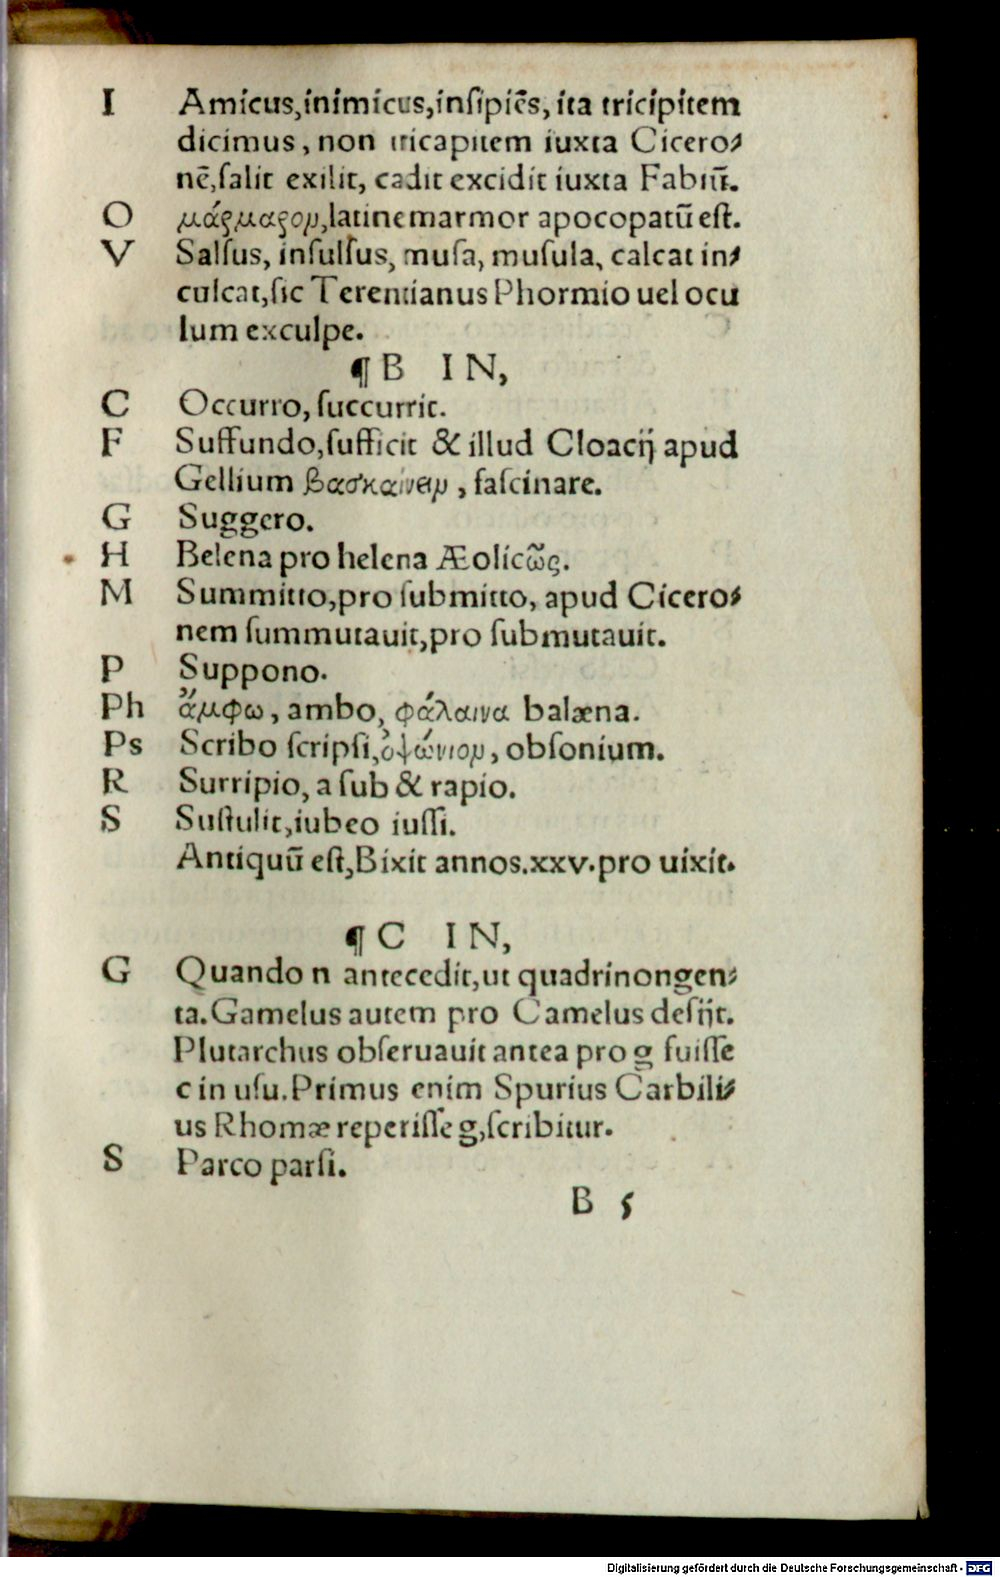 I Amicus,inimicus,inſipiēs, ita tricipitem
dicimus, non tricapitem iuxta Cicero⸗
nē,ſalit exilit, cadit excidit iuxta Fabiū.
O μάρμαρομ,latine marmor apocopatū eſt.
V Salſus, inſulſus, muſa, muſula, calcat in⸗
culcat,ſic Terentianus Phormio uel ocu
lum exculpe.
¶ B IN,
C Occurro, ſuccurrit.
F Suffundo,ſufficit & illud Cloacij apud
Gellium βασκαίνειμ, faſcinare.
G Suggero.
H Belena pro helena Æolicῶς.
M Summitto,pro ſubmitto, apud Cicero⸗
nem ſummutauit,pro ſubmutauit.
P Suppono.
Ph ἄμφω, ambo, φάλαινα balæna.
Ps Scribo ſcripſi,ὀψώνιομ, obſonium.
R Surripio, a ſub & rapio.
S Suſtulit,iubeo iuſſi.
Antiquū eſt,Bixit annos.xxv.pro uixit.
¶ C IN,
G Quando n antecedit,ut quadrinongen⸗
ta.Gamelus autem pro Camelus deſijt.
Plutarchus obſeruauit antea pro g fuiſſe
c in uſu.Primus enim Spurius Carbili⸗
us Rhomæ reperiſſe g,ſcribitur.
S Parco parſi.
B 5
Digitalisierung gefördert durch die Deutsche Forschungsgemeinschaft - DFG